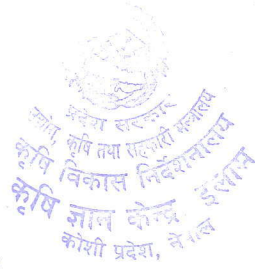 प्रदेश सरकार
उद्योग, कृषि तथा सहकारी मन्त्रालय
कृषि विकास निर्देशनालय
कृषि ज्ञान केन्द्र, इलाम
कोशी प्रदेश, नेपाल